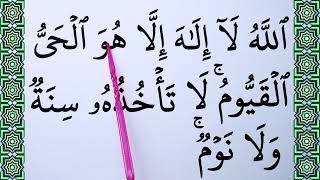 ٱللَّهُ لَآ إِلَٰهَ إِلَّا هُوَ ٱلْحَىُّ
ٱلْقَيُّومُ ۚ لَا تَأْخُذُهُۥ سِنَةٌ
وَلَا نَوْمٌ ۚ